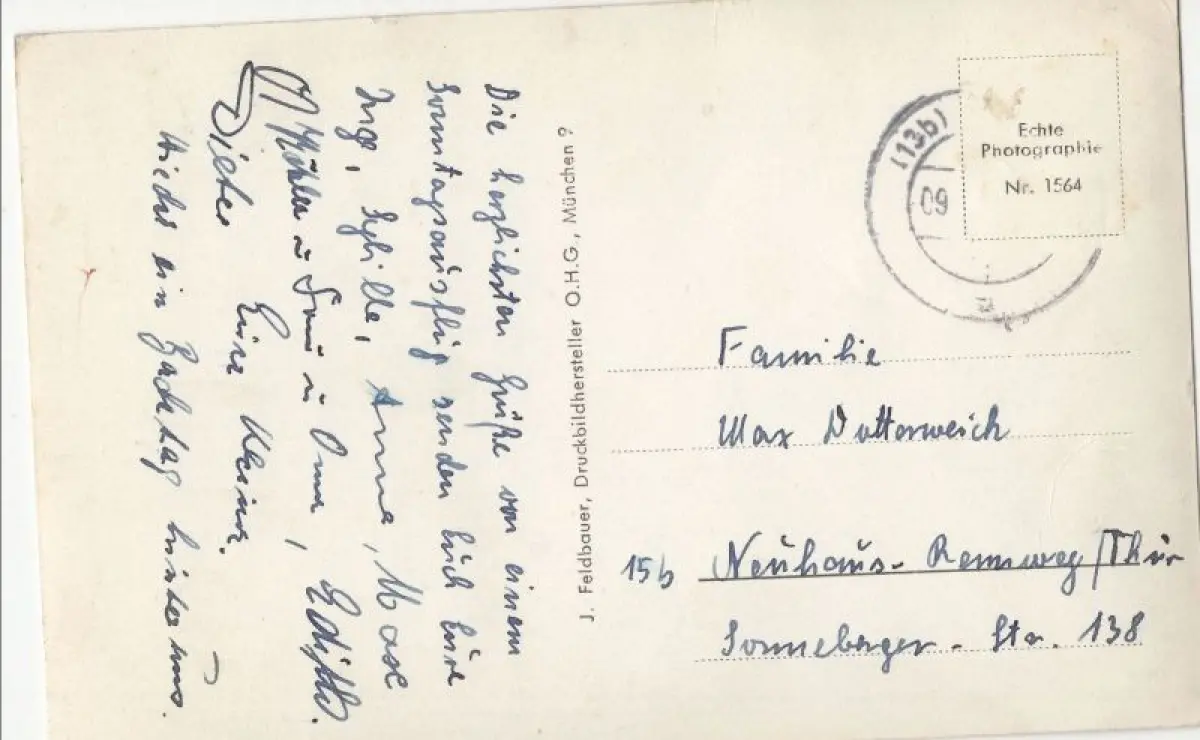 Die herzlichsten Grüße von einem
Sonntagsausflug senden Euch Eure
Inge, Sybille, Anna,
u Oma, Edith.
Dieter Eure
Wieder ein Badetag hinter uns.
J. Feldbauer, Druckbildhersteller O.H.G., München ?
(13b)
09
Echte
Photographie
Nr. 1564
Familie
Max Dotterweich
15b Neuhaus-Rennweg/Thür
Sonneberger-Str. 138